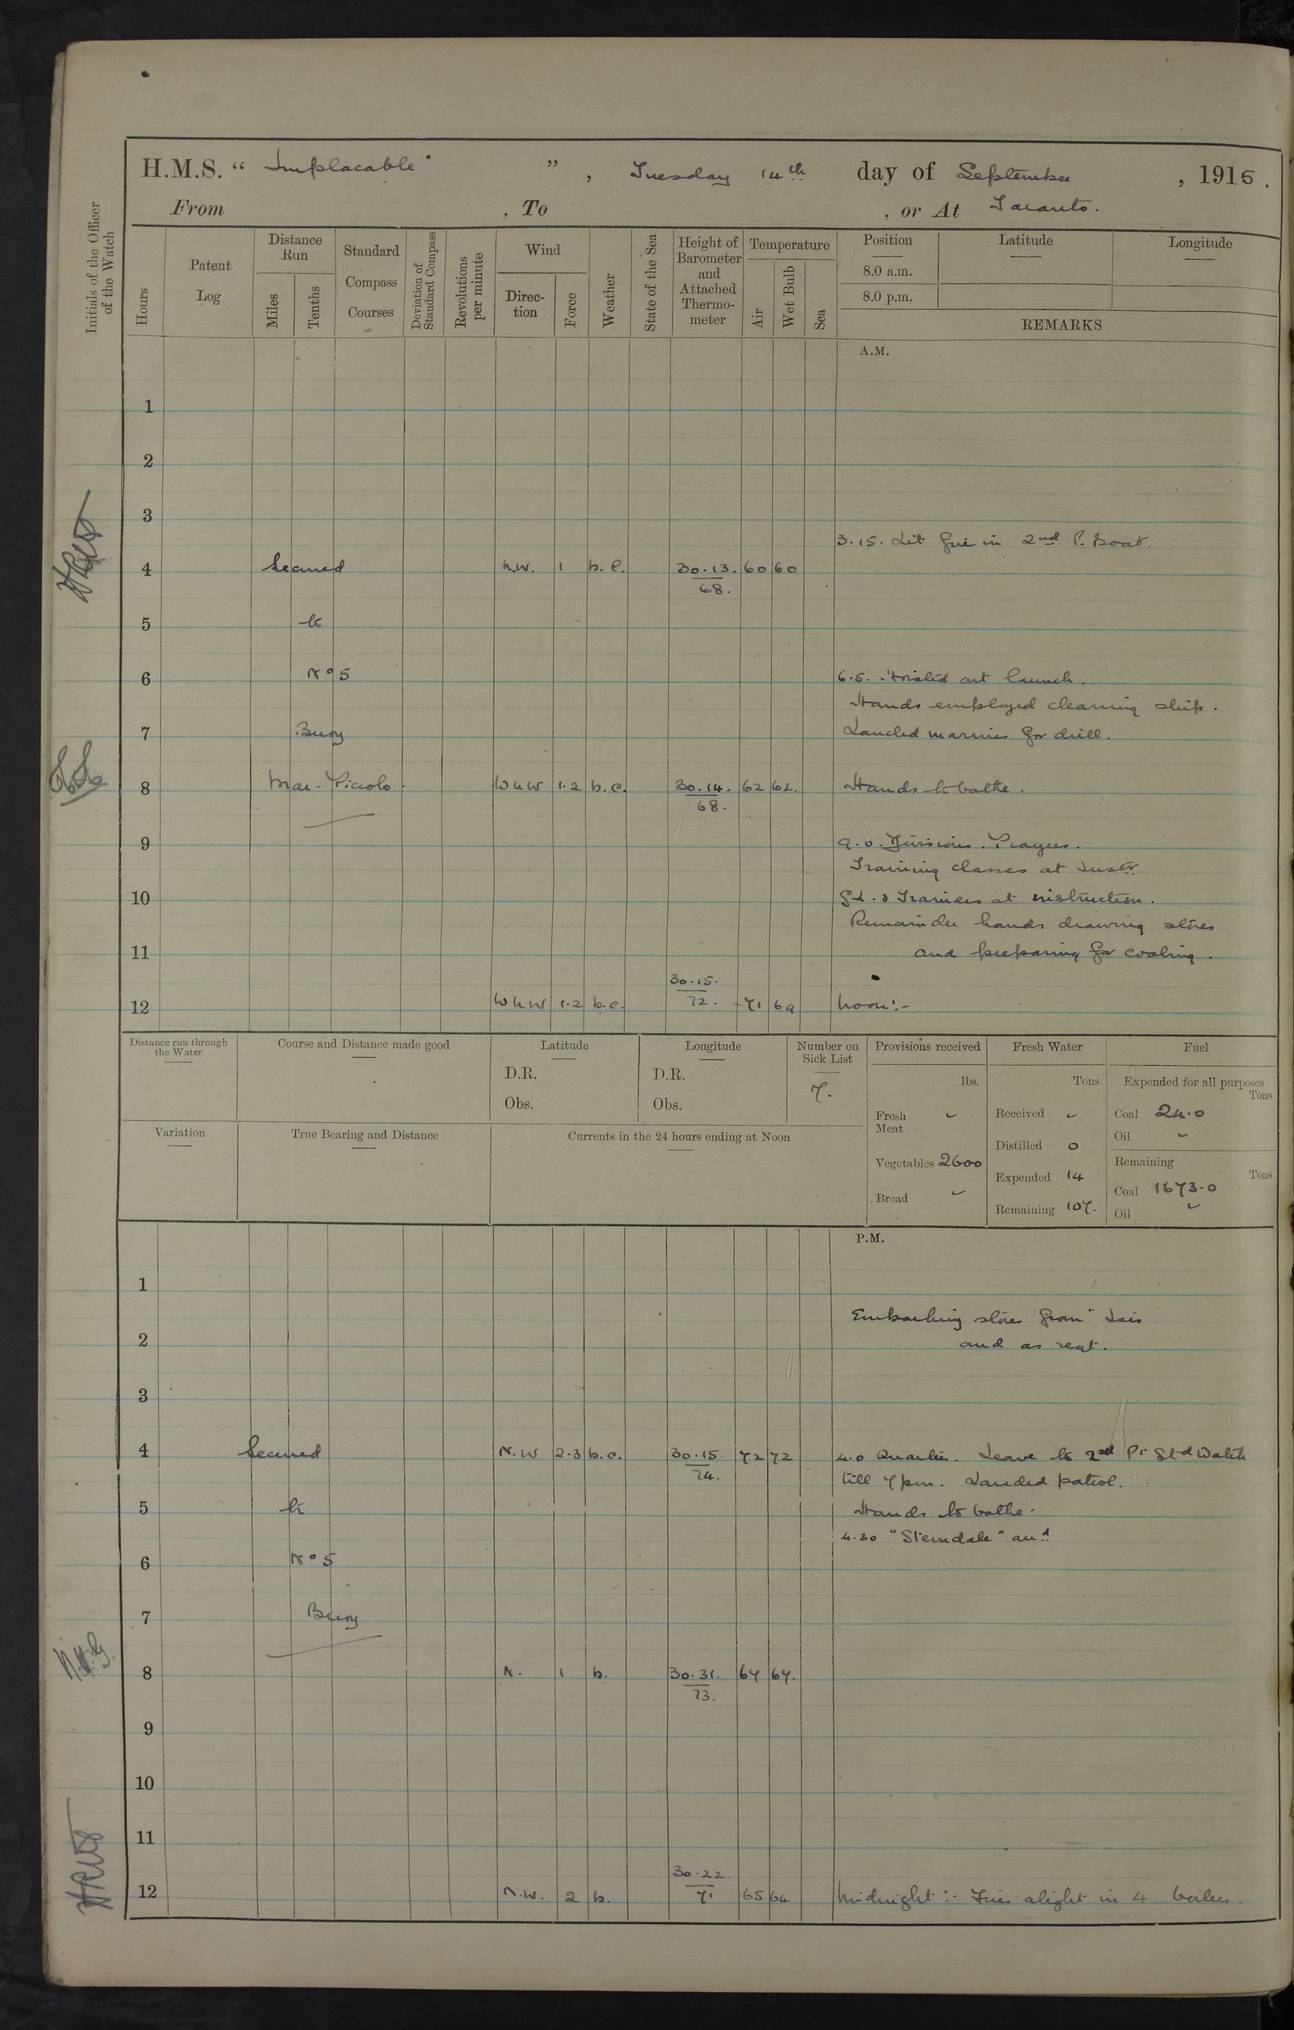 H.M.S. “ Implacable ” , Tuesday 14th day of September , 1915 .
From , To , or At Taranto.
Initials of the Officer of the Watch
Hours
Patent Log
Distance Run
Miles
Tenths
Standard Compass Courses
Deviation of Standard Compass
Revolutions per minute
Wind
Direction
Force
Weather
State of the Sea
Height of Barometer and Attached Thermometer
Temperature
Air
Wet Bulb
Sea
Position
8.0 a.m.
8.0 p.m.
Latitude
Longitude
REMARKS
A.M.
1
2
3
3.15. Lit fire in 2nd P. Boat.
4 Secured N.W. 1 b.c. 30.13. 68. 60 60
5 to
6 No 5 6.5. Hoisted out launch.
Hands employed cleaning ship.
7 Buoy Landed marines for drill.
8 Mar Piccolo. WNW 1.2 b.c. 30.14. 68. 62 62. Hands to bathe.
9 9.0. Divisions. Prayers.
Training classes at Instr.
10 Gd. & Trainers at instruction.
Remainder hands drawing stores
11 and preparing for coaling.
12 WNW 1.2 b.c. 30.15. 72. 71 69 Noon:-
Distance run through the Water
Course and Distance made good
Latitude
D.R.
Obs.
Longitude
D.R.
Obs.
Number on Sick List
7.
Provisions received
lbs.
Fresh Meat
Vegetables 2600
Bread
Fresh Water
Tons
Received
Distilled 0
Expended 14
Remaining 107.
Fuel
Expended for all purposes
Tons
Coal 24.0
Oil
Remaining
Tons
Coal 1673.0
Oil
Variation
True Bearing and Distance
Currents in the 24 hours ending at Noon
P.M.
1
Embarking stores from "Isis
2 and as reqt.
3
4 Secured N.W 2.3 b.c. 30.15. 74. 72 72 4.0 Quarters. Leave to 2nd Pt. Std Watch
till 7pm. Landed patrol.
5 to Hands to bathe.
4.30 "Sterndale" arrd
6 No 5
7 Buoy
8 N. 1 b. 30.31. 73. 67 67.
9
10
11
12 N.W. 2 b. 30.22. 71 65 64 Midnight:- Fires alight in 4 boilers.